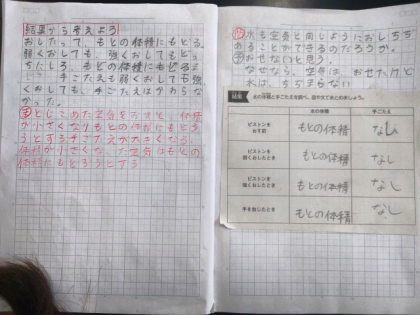 結果から考えよう
おしたって、もとの体積にもどる。
弱くおしても、強くおしても
ちにしろ、もとの体積にもどる
手ごたえも弱くおしても強
くおしても、手ごたえはかわらな
かった。
とじこめた空気をおすと、体積
が小さくなりもとの体積にもどろ
うとする手ごたえが大きくなる。
体積が小さくなった空気はもとの
体積にもどろうとする
水も空気と同じようにおしちぢ
めることができるのだろうか。
おせないと思う。
なぜなら、空気は、おせたけど
水は、ちぢまらない
結果 水の体積と手ごたえを調べ、図や文でまとめましょう。
水の体積 手ごたえ
ピストンをおす前 もとの体積 なし
ピストンを弱くおしたとき もとの体積 なし
ピストンを強くおしたとき もとの体積 なし
手をはなしたとき もとの体積 なし